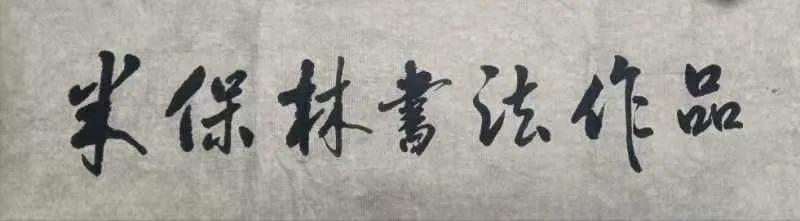 米保林書法作品